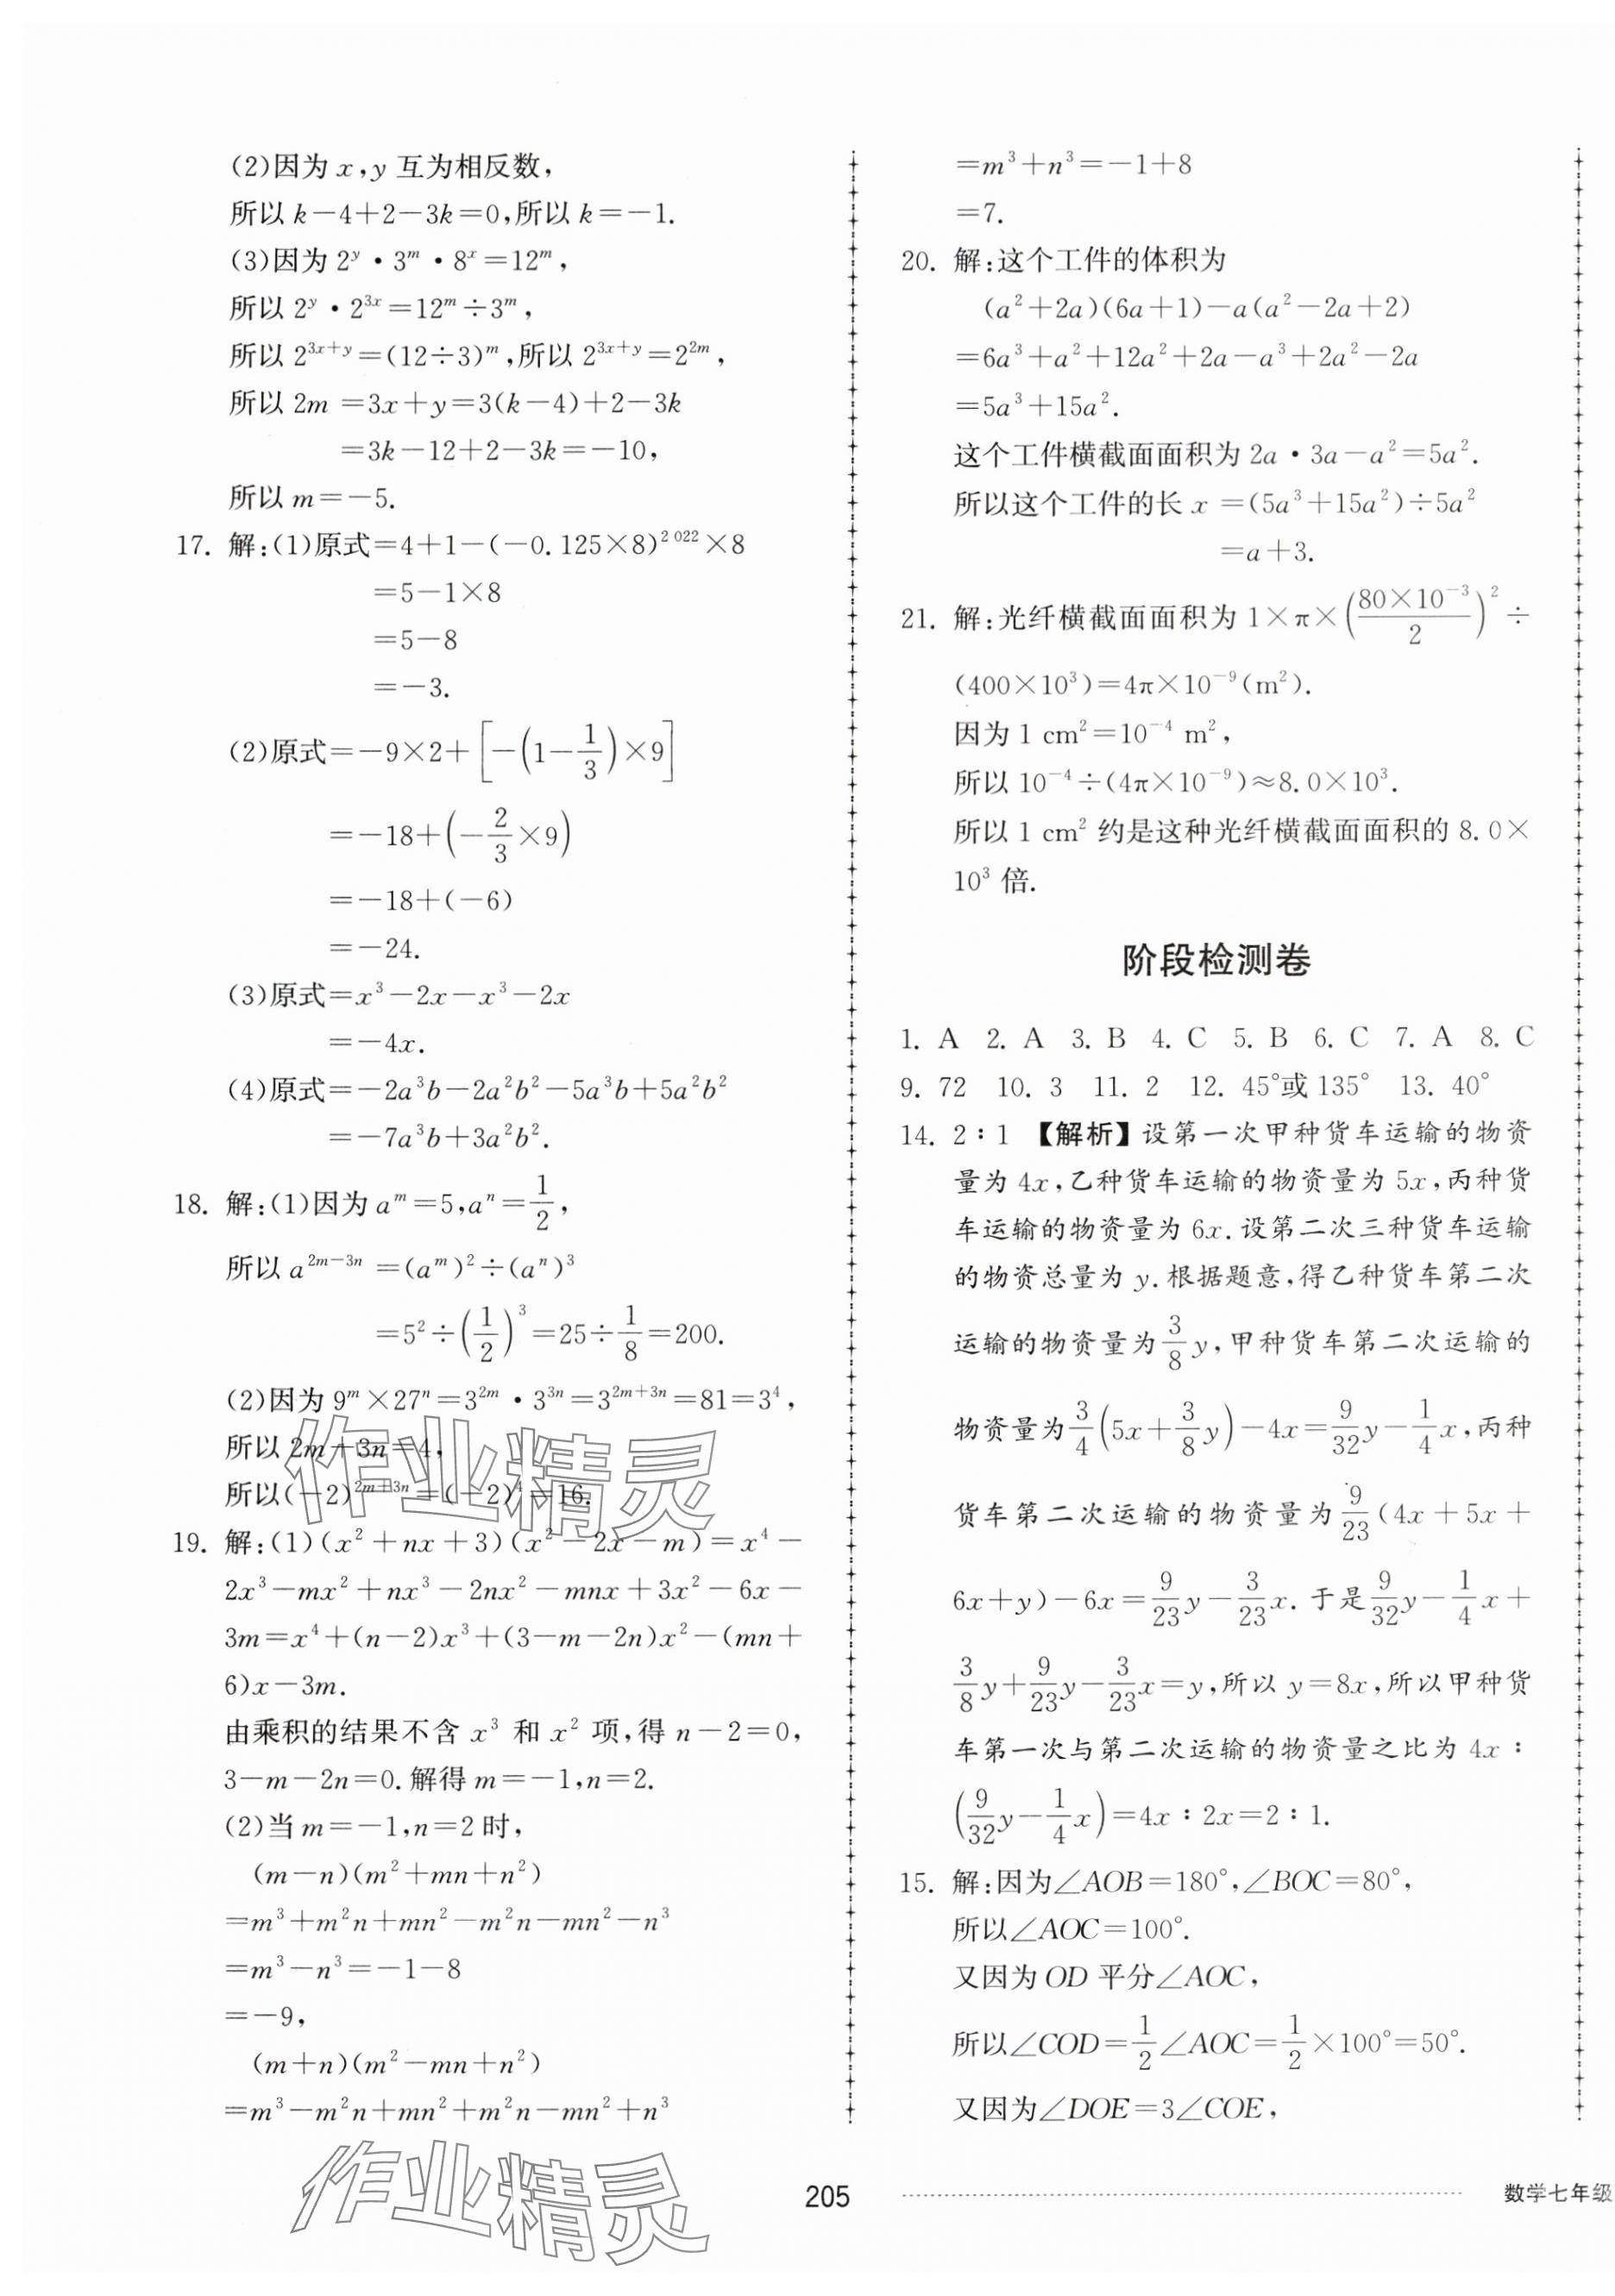 (2)因为 x,y 互为相反数,
所以 k−4+2−3k=0,所以 k=−1.
(3)因为 2^y·3^m·8^x=12^m,
所以 2^y·2^{3x}=12^m÷3^m,
所以 2^{3x+y}=(12÷3)^m,所以 2^{3x+y}=2^{2m},
所以 2m =3x+y=3(k−4)+2−3k
=3k−12+2−3k=−10,
所以 m=−5.
17. 解:(1)原式=4+1−(−0.125×8)^{2 022}×8
=5−1×8
=5−8
=−3.
(2)原式=−9×2+[−(1−1/3)×9]
=−18+(−2/3×9)
=−18+(−6)
=−24.
(3)原式=x³−2x−x³−2x
=−4x.
(4)原式=−2a³b−2a²b²−5a³b+5a²b²
=−7a³b+3a²b².
18. 解:(1)因为 a^m=5,a^n=1/2,
所以 a^{2m−3n} =(a^m)²÷(a^n)³
=5²÷(1/2)³=25÷1/8=200.
(2)因为 9^m×27^n=3^{2m}·3^{3n}=3^{2m+3n}=81=3⁴,
所以 2m+3n=4,
所以(−2)^{2m+3n}=(−2)⁴=16.
19. 解:(1)(x²+nx+3)(x²−2x−m)=x⁴−
2x³−mx²+nx³−2nx²−mnx+3x²−6x−
3m=x⁴+(n−2)x³+(3−m−2n)x²−(mn+
6)x−3m.
由乘积的结果不含 x³ 和 x² 项,得 n−2=0,
3−m−2n=0.解得 m=−1,n=2.
(2)当 m=−1,n=2 时,
(m−n)(m²+mn+n²)
=m³+m²n+mn²−m²n−mn²−n³
=m³−n³=−1−8
=−9,
(m+n)(m²−mn+n²)
=m³−m²n+mn²+m²n−mn²+n³
=m³+n³=−1+8
=7.
20. 解:这个工件的体积为
(a²+2a)(6a+1)−a(a²−2a+2)
=6a³+a²+12a²+2a−a³+2a²−2a
=5a³+15a².
这个工件横截面面积为 2a·3a−a²=5a².
所以这个工件的长 x =(5a³+15a²)÷5a²
=a+3.
21. 解:光纤横截面面积为 1×π×((80×10⁻³)/2)²÷
(400×10³)=4π×10⁻⁹(m²).
因为 1 cm²=10⁻⁴ m²,
所以 10⁻⁴÷(4π×10⁻⁹)≈8.0×10³.
所以 1 cm² 约是这种光纤横截面面积的 8.0×
10³ 倍.
阶段检测卷
1. A 2. A 3. B 4. C 5. B 6. C 7. A 8. C
9. 72 10. 3 11. 2 12. 45°或 135° 13. 40°
14. 2∶1 【解析】设第一次甲种货车运输的物资
量为 4x,乙种货车运输的物资量为 5x,丙种货
车运输的物资量为 6x.设第二次三种货车运输
的物资总量为 y.根据题意,得乙种货车第二次
运输的物资量为 3/8 y,甲种货车第二次运输的
物资量为 3/4(5x+3/8 y)−4x=9/32 y−1/4 x,丙种
货车第二次运输的物资量为 9/23(4x+5x+
6x+y)−6x=9/23 y−3/23 x.于是 9/32 y−1/4 x+
3/8 y+9/23 y−3/23 x=y,所以 y=8x,所以甲种货
车第一次与第二次运输的物资量之比为 4x∶
(9/32 y−1/4 x)=4x∶2x=2∶1.
15. 解:因为∠AOB=180°,∠BOC=80°,
所以∠AOC=100°.
又因为 OD 平分∠AOC,
所以∠COD=1/2∠AOC=1/2×100°=50°.
又因为∠DOE=3∠COE,
作业精灵
作业精灵
205
数学七年级